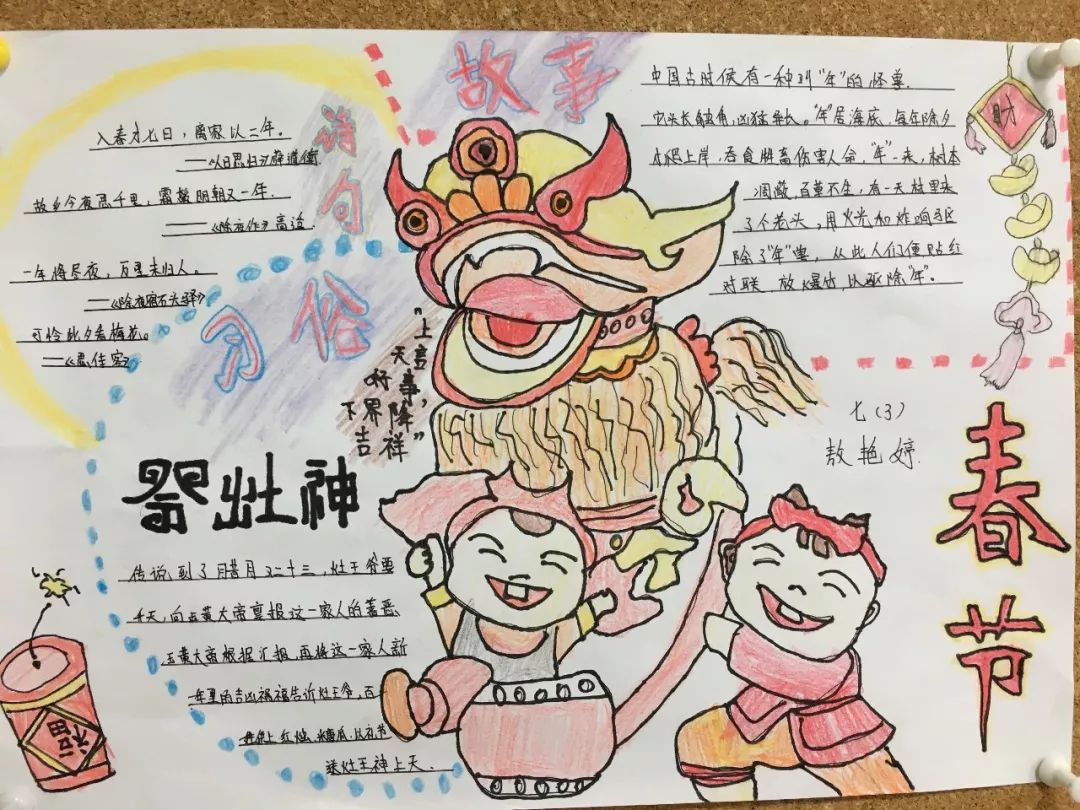 故事
诗句
入春才七日，离家以二年。
——《人日思归》薛道衡
故乡今夜思千里，霜鬓明朝又一年。
——《除夜作》高适
一年将尽夜，万里未归人。
——《除夜宿石头驿》
可怜此夕看梅花。
——《思佳客》
中国古时候有一种叫“年”的怪兽.
它头长触角,凶猛异长。“年”居海底，每年除夕
才爬上岸，吞食牲畜伤害人命,“年”一来，树木
凋蔽，百草不生，有一天村里来
了个老头，用火光和炸响驱
除了“年”兽，从此人们便贴红
对联，放爆竹以驱除“年”。
财
习俗
“上天言好事，
下界降吉祥”
七（3）
敖艳婷
春节
祭灶神
传说,到了腊月二十三，灶王爷要
升天，向玉黄大帝禀报这一家人的善恶
玉黄大帝根据汇报，再将这一家人新
一年里的吉凶祸福告诉灶王爷，百
姓供上红烛、糖瓜，以礼节
送灶王神上天．
福